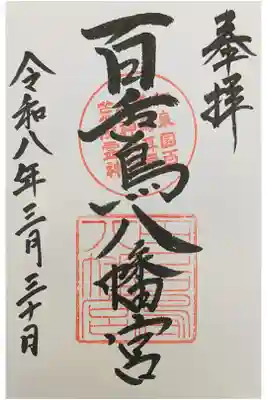 奉拝
百舌鳥八幡宮
令和八年三月三十日